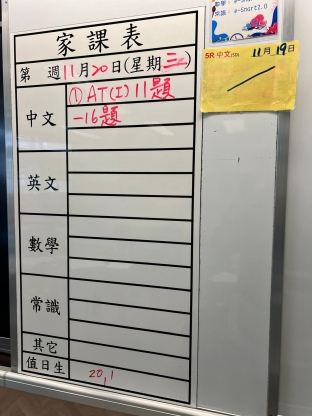 數學：e-Smart
常識：e-Smart2.0
家課表
第 週11月20日(星期三)
中文
①AT(I)11題
-16題
英文
數學
常識
其它
值日生
20,1
5R 中文(5D) 11月19日